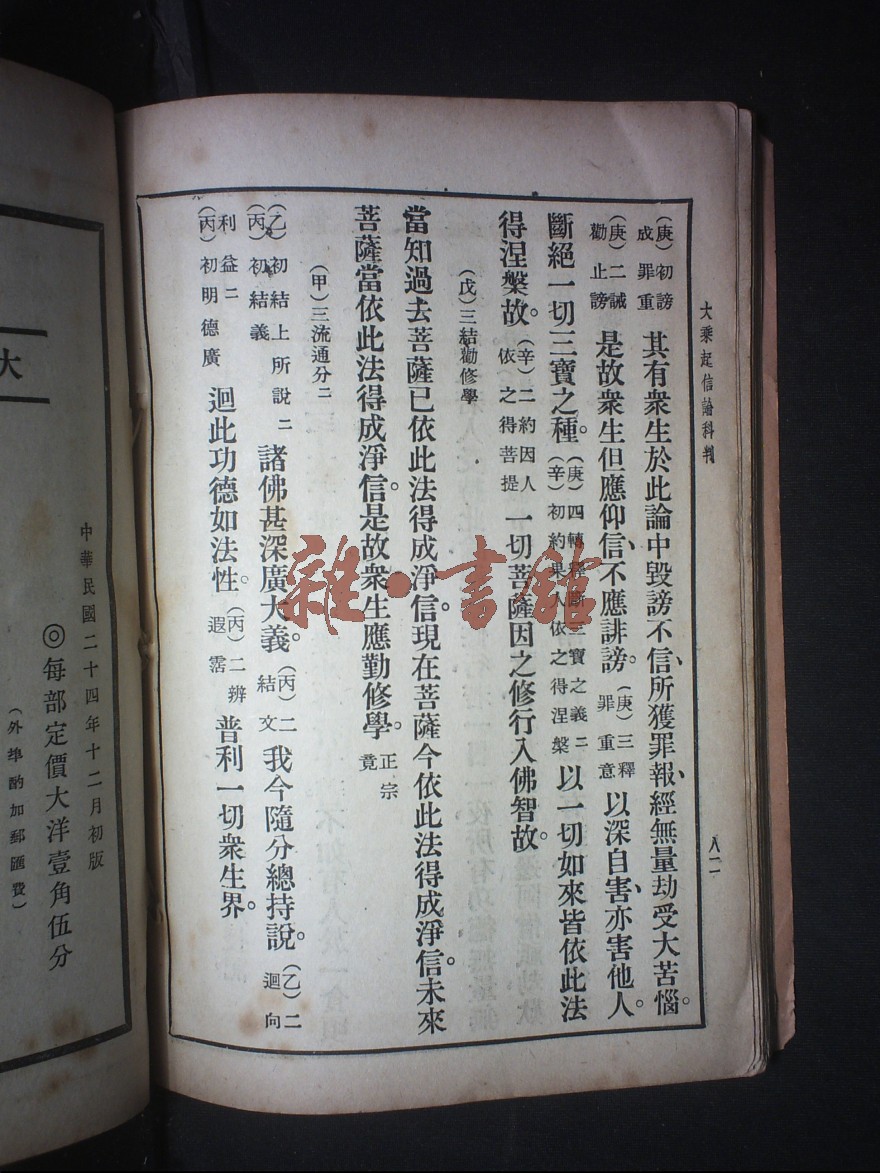 大乘起信論科判
八二
(庚)初謗成罪重 其有衆生於此論中毀謗不信、所獲罪報、經無量劫受大苦惱。
(庚)二誡勸止謗 是故衆生但應仰信、不應誹謗。(庚)三釋罪重意 以深自害、亦害他人。
斷絕一切三寶之種。(庚)四轉釋斷三寶之義二(辛)初約果人依之得涅槃 以一切如來皆依此法
得涅槃故。(辛)二約因人依之得菩提 一切菩薩因之修行入佛智故。
(戊)三結勸修學
當知過去菩薩已依此法得成淨信。現在菩薩今依此法得成淨信。未來
菩薩當依此法得成淨信。是故衆生應勤修學。正宗竟
(甲)三流通分二
(乙)初結上所說二(丙)初結義 諸佛甚深廣大義。(丙)二結文 我今隨分總持說。(乙)二迴向
利益二(丙)初明德廣 迴此功德如法性。(丙)二辨遐霑 普利一切衆生界。
雜·書館
中華民國二十四年十二月初版
◎每部定價大洋壹角伍分
(外埠酌加郵匯費)
大